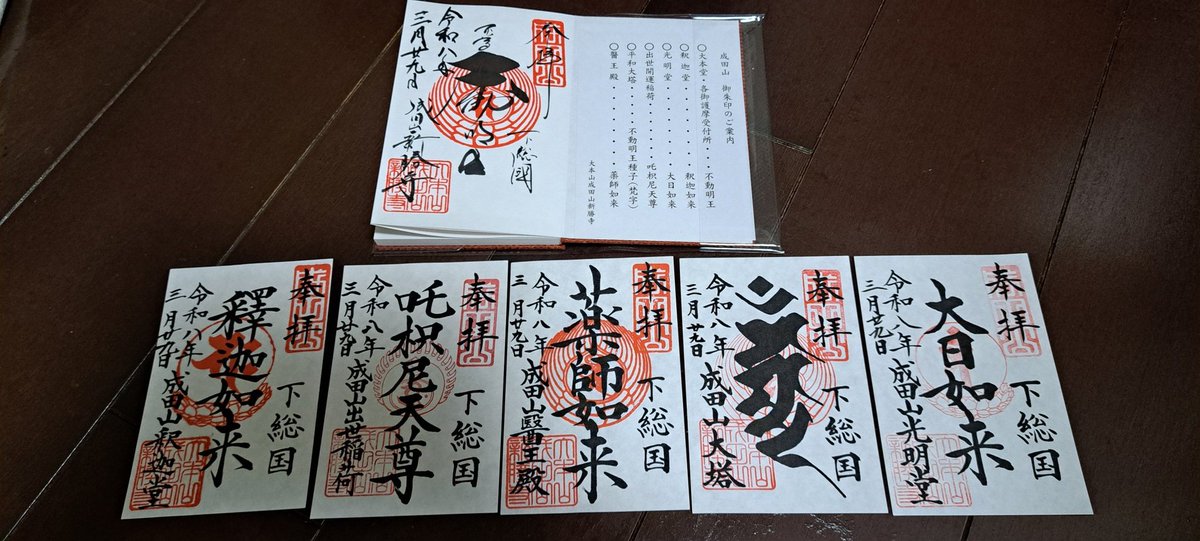 奉拝
下総國
不動明王
令和八年
三月廿九日 成田山新勝寺
成田山 御朱印のご案内
○大本堂・各御護摩受付所・・・不動明王
○釈迦堂・・・・・・・・・釈迦如来
○光明堂・・・・・・・・・大日如来
○出世開運稲荷・・・・・・吒枳尼天尊
○平和大塔・・・・不動明王種子(梵字)
○醫王殿・・・・・・・・・薬師如来
大本山成田山新勝寺
奉拝
下総国
釋迦如来
令和八年 成田山釈迦堂
三月廿九日
奉拝
下総国
吒枳尼天尊
令和八年 成田山出世稲荷
三月廿九日
奉拝
下総国
薬師如来
令和八年 成田山醫王殿
三月廿九日
奉拝
下総国
令和八年 成田山大塔
三月廿九日
奉拝
下総国
大日如来
令和八年 成田山光明堂
三月廿九日